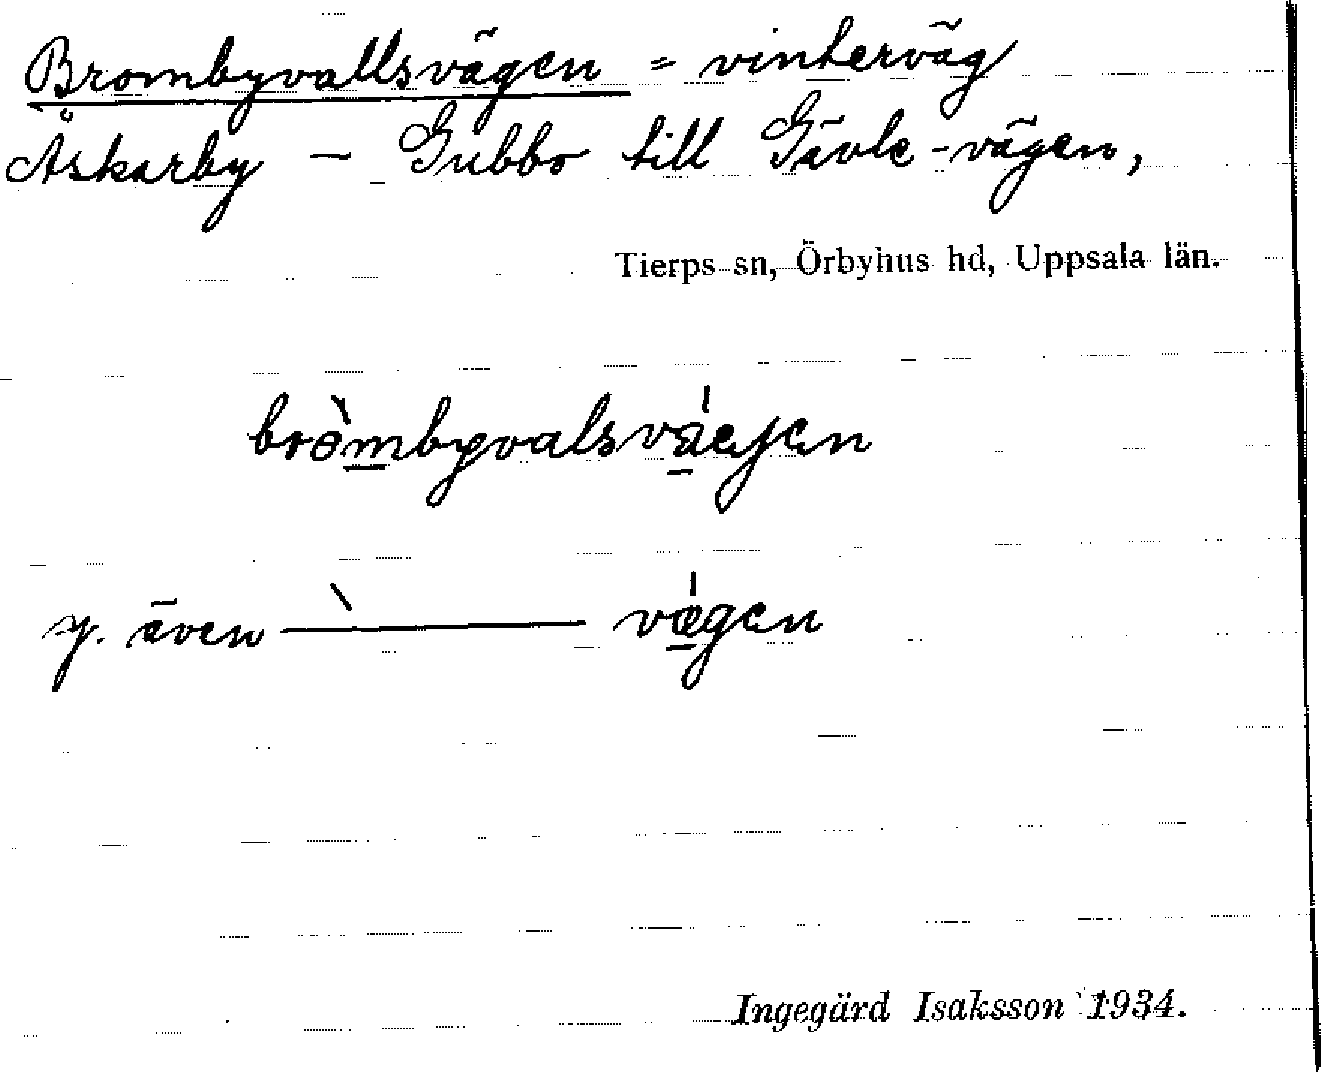 Brombyvallsvägen = vinterväg
Åskarby – Gubbo till Gävle-vägen,
Tierps sn, Örbyhus hd, Uppsala län.
bròmbyvalsvä́gen
y. även ——— vǽgen
Ingegärd Isaksson 1934.